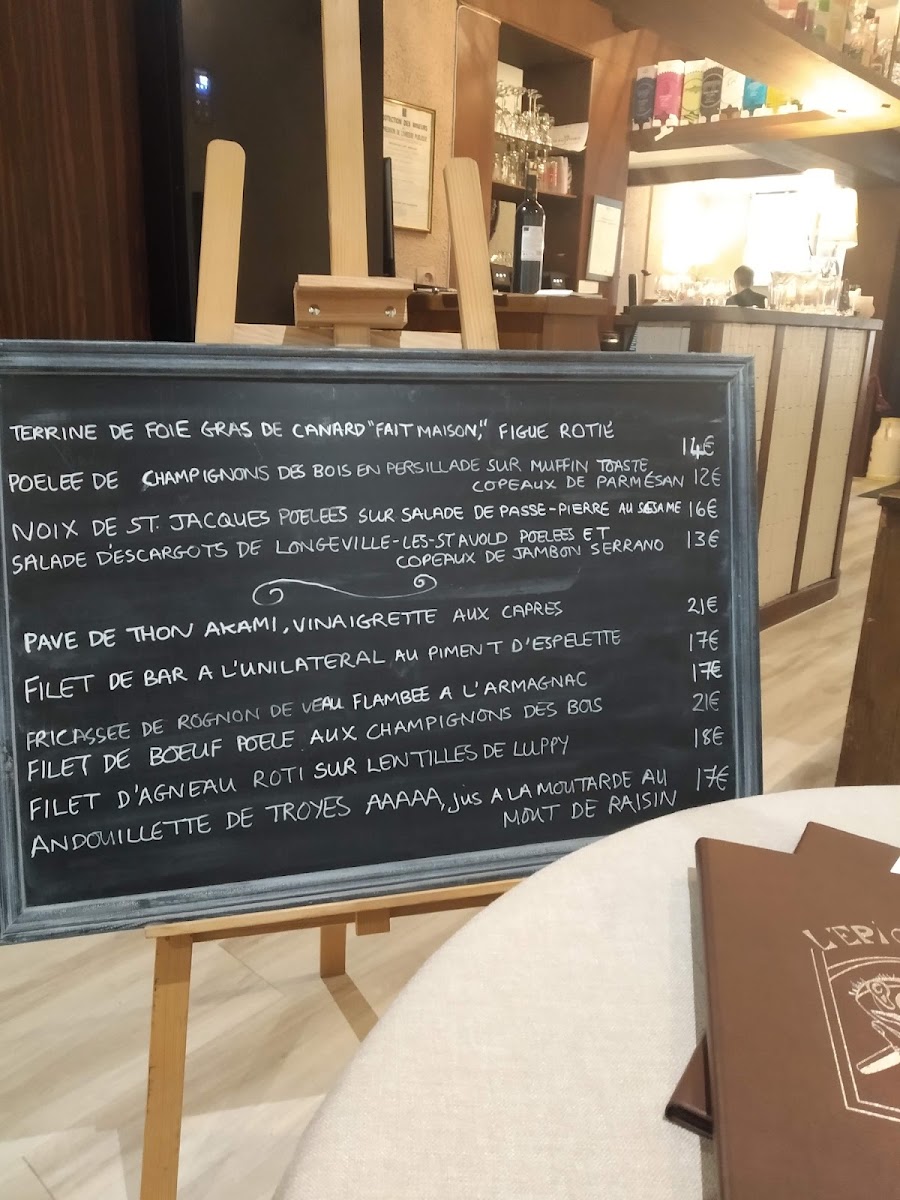 TERRINE DE FOIE GRAS DE CANARD "FAIT MAISON", FIGUE ROTIE 14€
POELEE DE CHAMPIGNONS DES BOIS EN PERSILLADE SUR MUFFIN TOASTE
COPEAUX DE PARMESAN 12€
NOIX DE ST. JACQUES POELEES SUR SALADE DE PASSE-PIERRE AU SESAME 16€
SALADE D'ESCARGOTS DE LONGEVILLE-LES-ST AVOLD POELEES ET 13€
COPEAUX DE JAMBON SERRANO
PAVE DE THON AKAMI, VINAIGRETTE AUX CAPRES 21€
FILET DE BAR A L'UNILATERAL AU PIMENT D'ESPELETTE 17€
FRICASSEE DE ROGNON DE VEAU FLAMBEE A L'ARMAGNAC 17€
FILET DE BOEUF POELE AUX CHAMPIGNONS DES BOIS 21€
FILET D'AGNEAU ROTI SUR LENTILLES DE LUPPY 18€
ANDOUILLETTE DE TROYES AAAAA, jus A LA MOUTARDE AU 17€
MOUT DE RAISIN
L'EPI